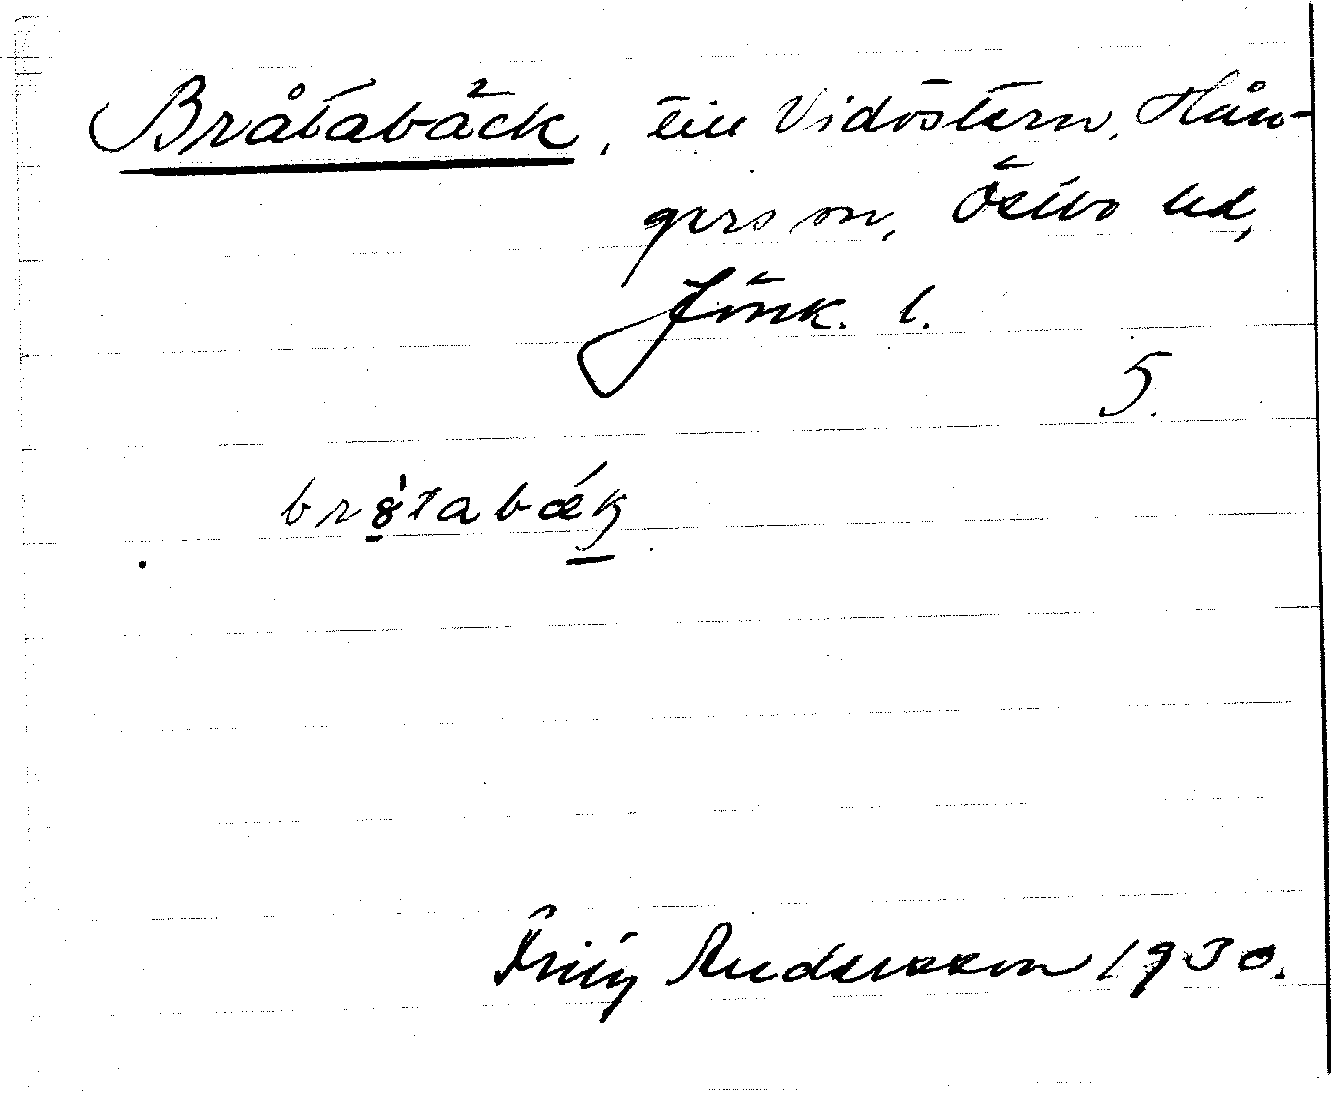 Bråtabäck, till Vidöstern, Hån-
gers sn, Östbo hd,
Jönk. l.
5.
br8̀tabǽk
Fritz Andersson 1930.